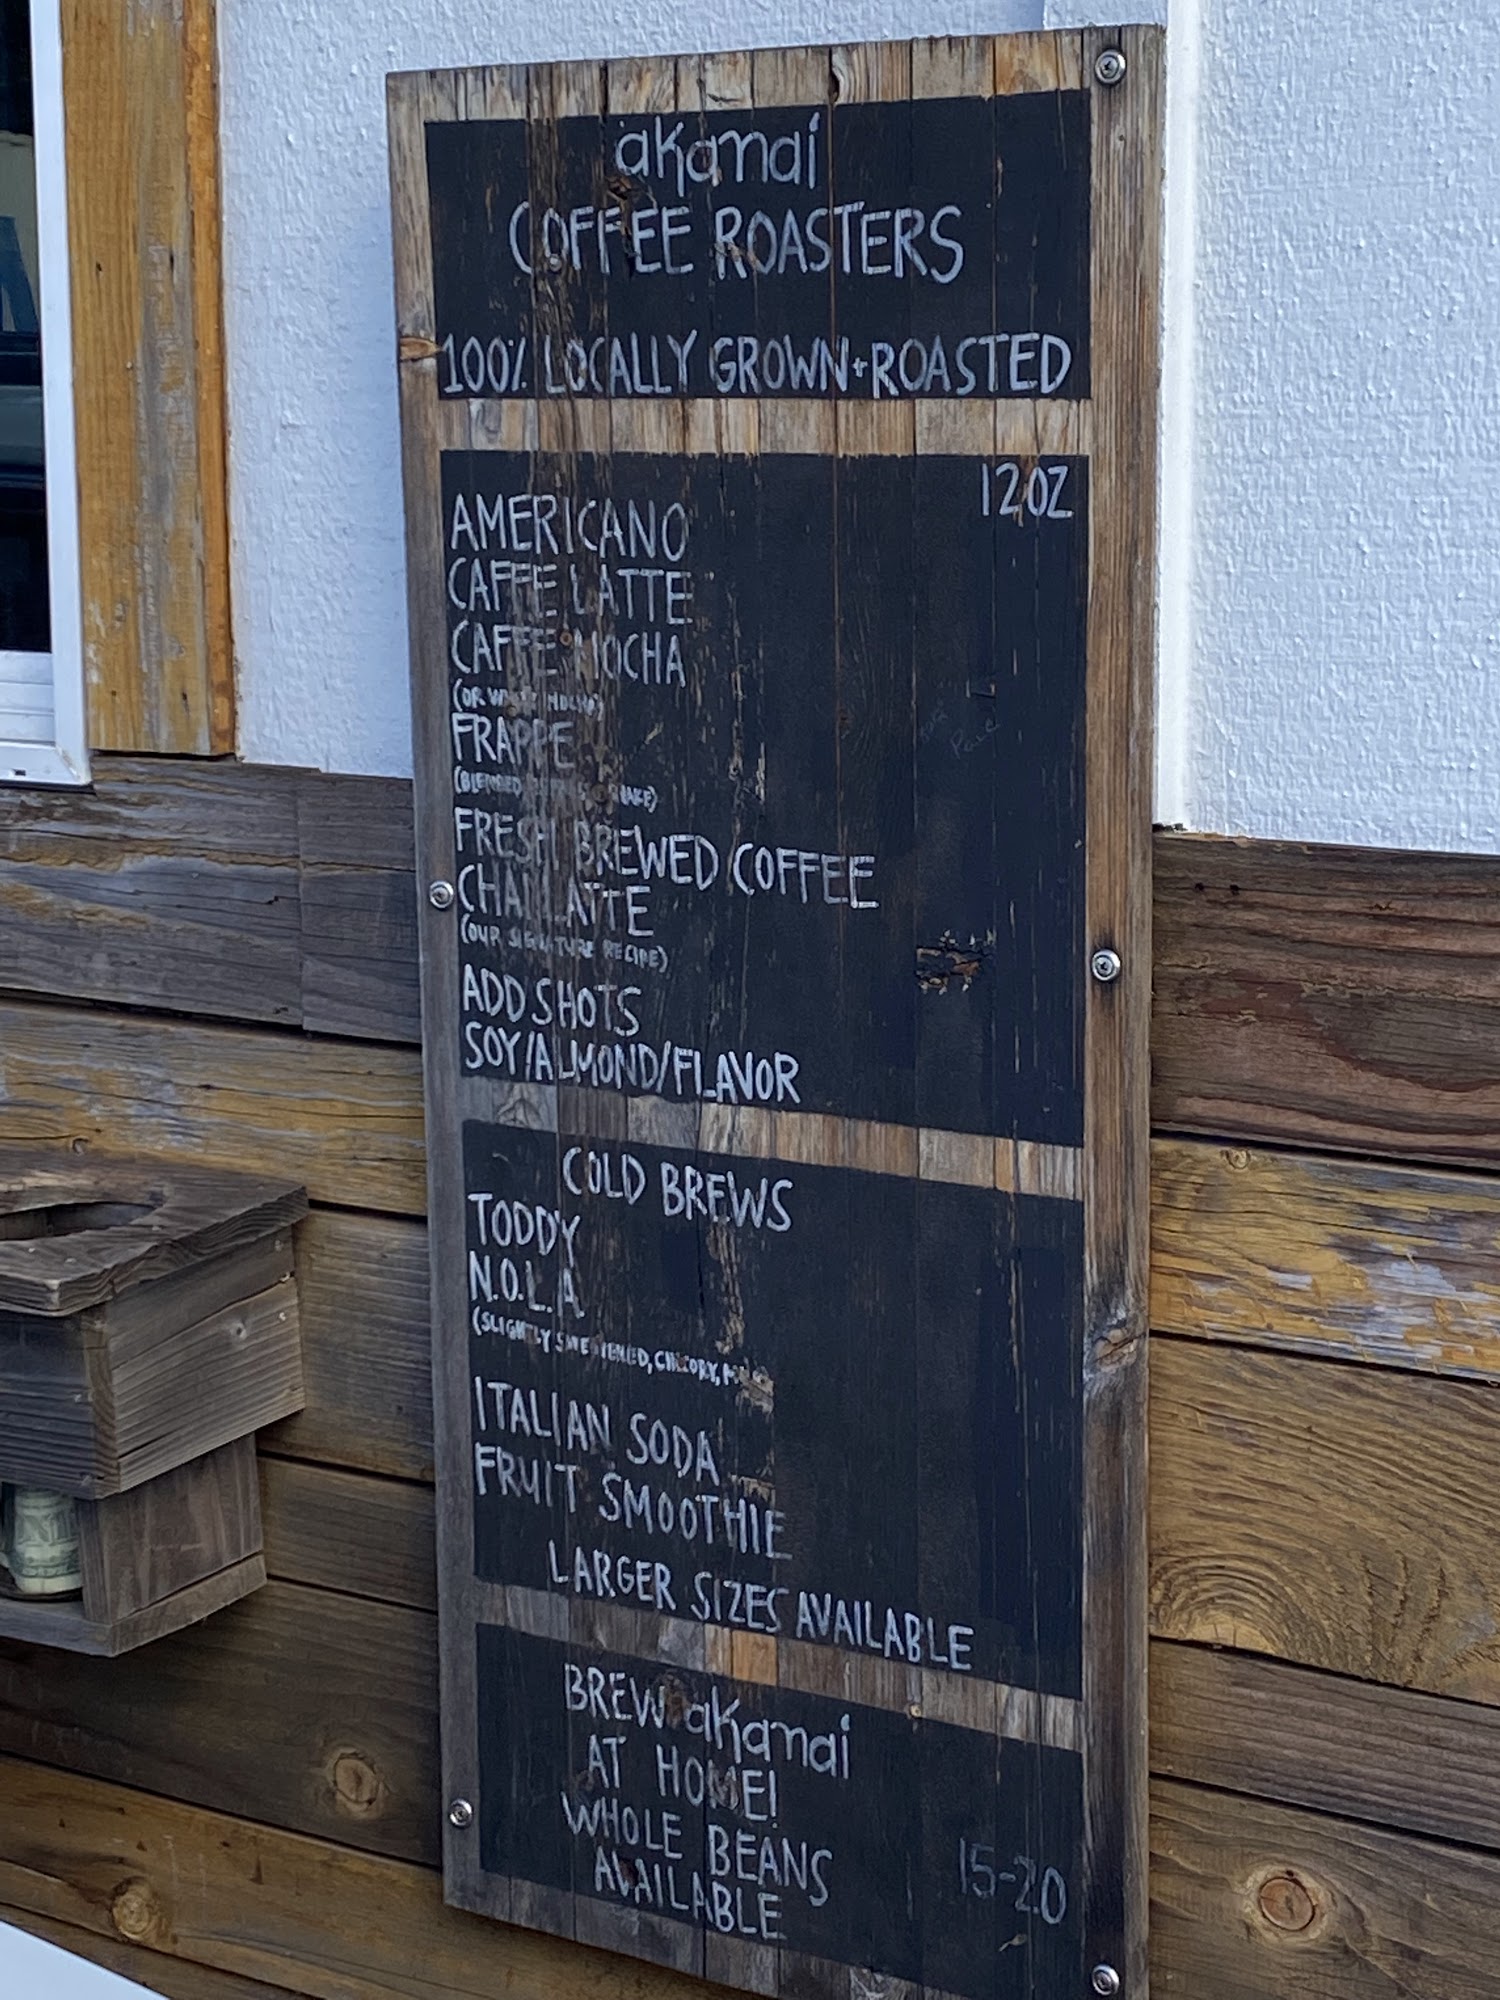 akamai
COFFEE ROASTERS
100% LOCALLY GROWN + ROASTED
12OZ
AMERICANO
CAFFE LATTE
CAFFE MOCHA
(OR WHITE MOCHA)
FRAPPE
(BLENDED
FRESH BREWED COFFEE
CHAI LATTE
(OUR SIGNATURE RECIPE)
ADD SHOTS
SOY/ALMOND/FLAVOR
COLD BREWS
TODDY
N.O.L.A
(SLIGHTLY SWEETENED, CHICORY,
ITALIAN SODA
FRUIT SMOOTHIE
LARGER SIZES AVAILABLE
BREW akamai
AT HOME!
WHOLE BEANS
AVAILABLE
15-20